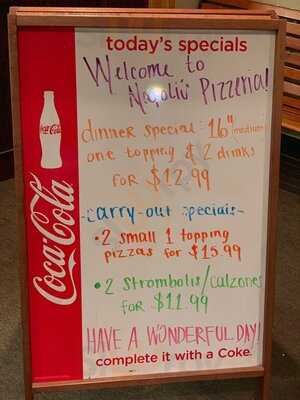 today's specials
Welcome to
Napoliu Pizzeria!
dinner special: 16" medium
one topping & 2 drinks
for $12.99
-carry-out specials-
• 2 small 1 topping
pizzas for $15.99
• 2 strombolis/calzones
for $11.99
HAVE A WONDERFUL DAY!
complete it with a Coke.
Coca-Cola
Coca-Cola